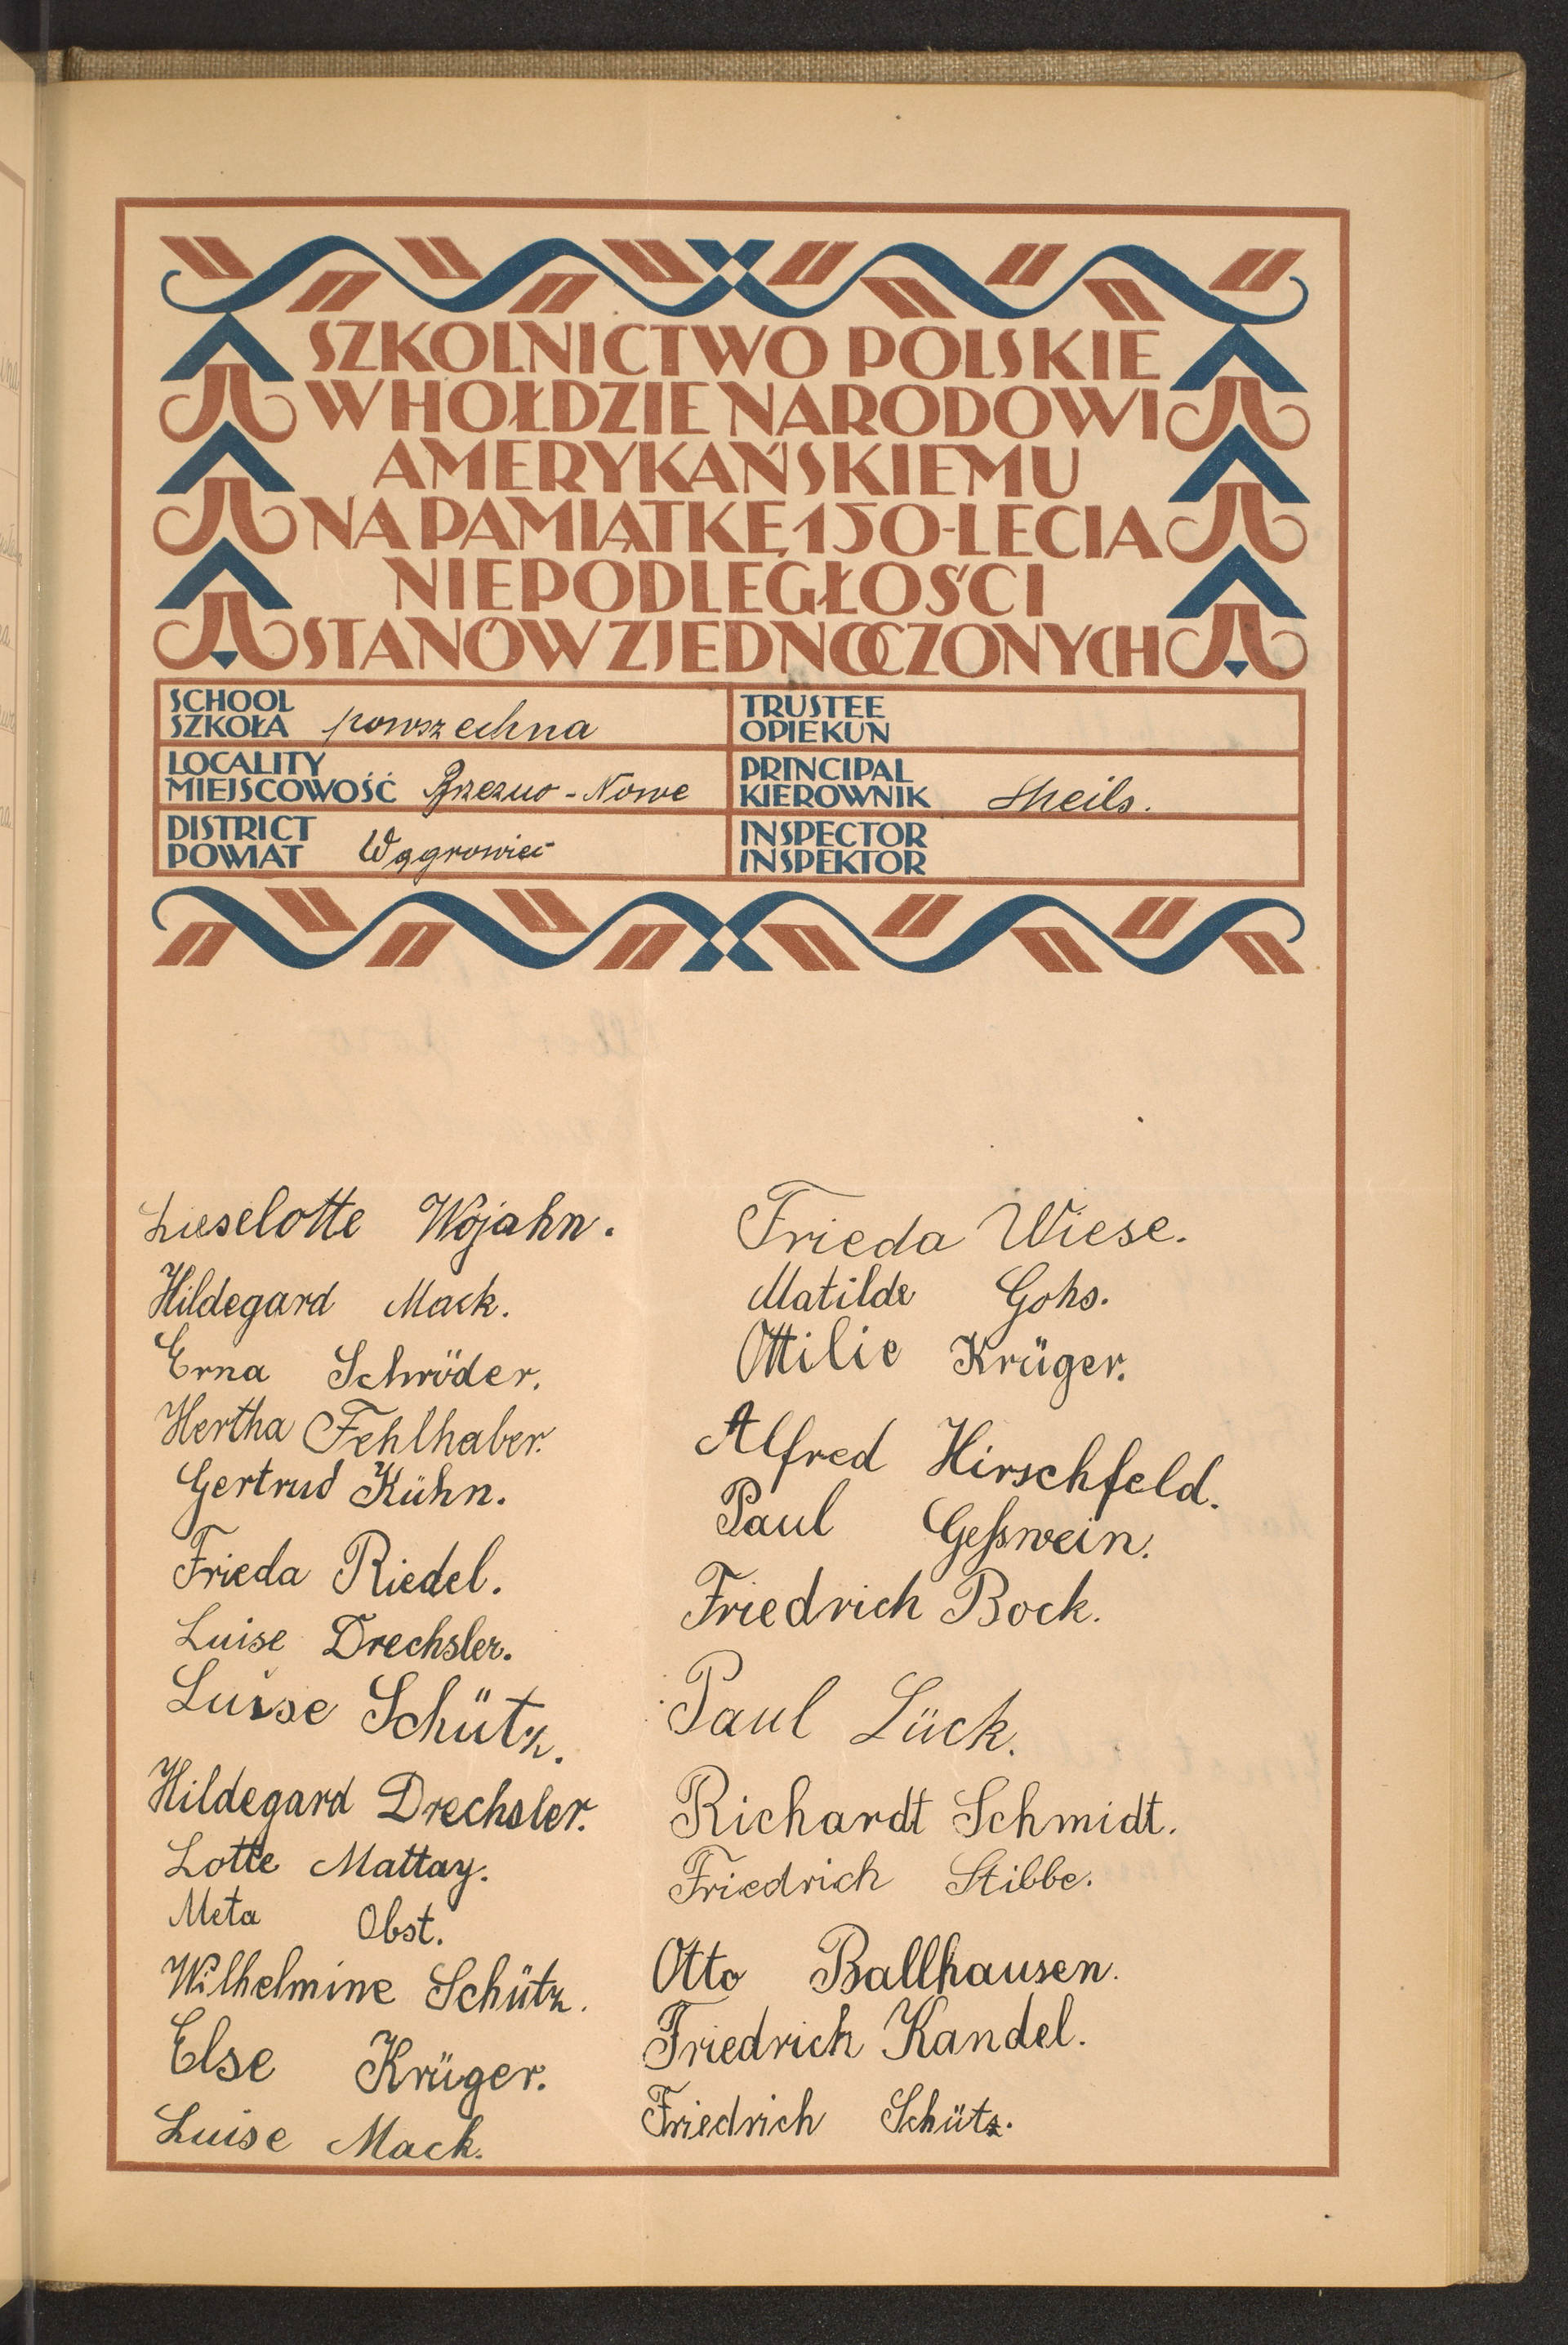 SZKOLNICTWO POLSKIE
W HOŁDZIE NARODOWI
AMERYKAŃSKIEMU
NA PAMIĄTKĘ 150-LECIA
NIEPODLEGŁOŚCI
STANÓW ZJEDNOCZONYCH
SCHOOL
SZKOŁA powszechna
LOCALITY
MIEJSCOWOŚĆ Brzezno-Nowe
DISTRICT
POWIAT Wągrowiec
TRUSTEE
OPIEKUN
PRINCIPAL
KIEROWNIK
INSPECTOR
INSPEKTOR
Lieselotte Wojahn.
Hildegard Mack.
Erna Schröder.
Hertha Fehlhaber.
Gertrud Kühn.
Frieda Riedel.
Luise Drechsler.
Luise Schütz.
Hildegard Drechsler.
Lotte Mattay.
Meta Obst.
Wilhelmine Schütz.
Else Krüger.
Luise Mack.
Frieda Wiese.
Matilde Gohs.
Ottilie Krüger.
Alfred Hirschfeld.
Paul Geßwein.
Friedrich Bock.
Paul Lück.
Richardt Schmidt.
Friedrich Stibbe.
Otto Ballhausen.
Friedrich Kandel.
Friedrich Schütz.